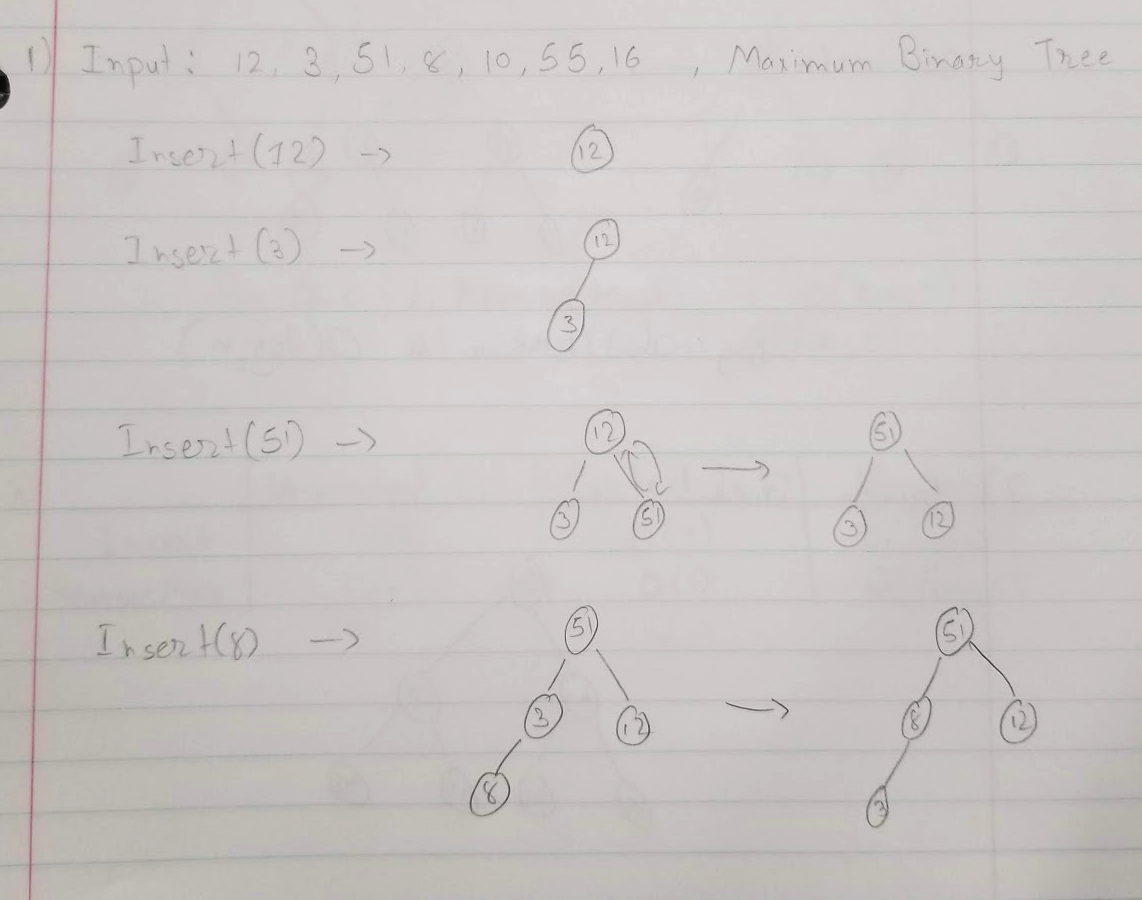 1) Input: 12, 3, 51, 8, 10, 55, 16 , Maximum Binary Tree
Insert(12) →
12
Insert(3) →
12
3
Insert(51) →
12 → 51
3 51 3 12
Insert(8) →
51 51
3 12 → 8 12
8 3